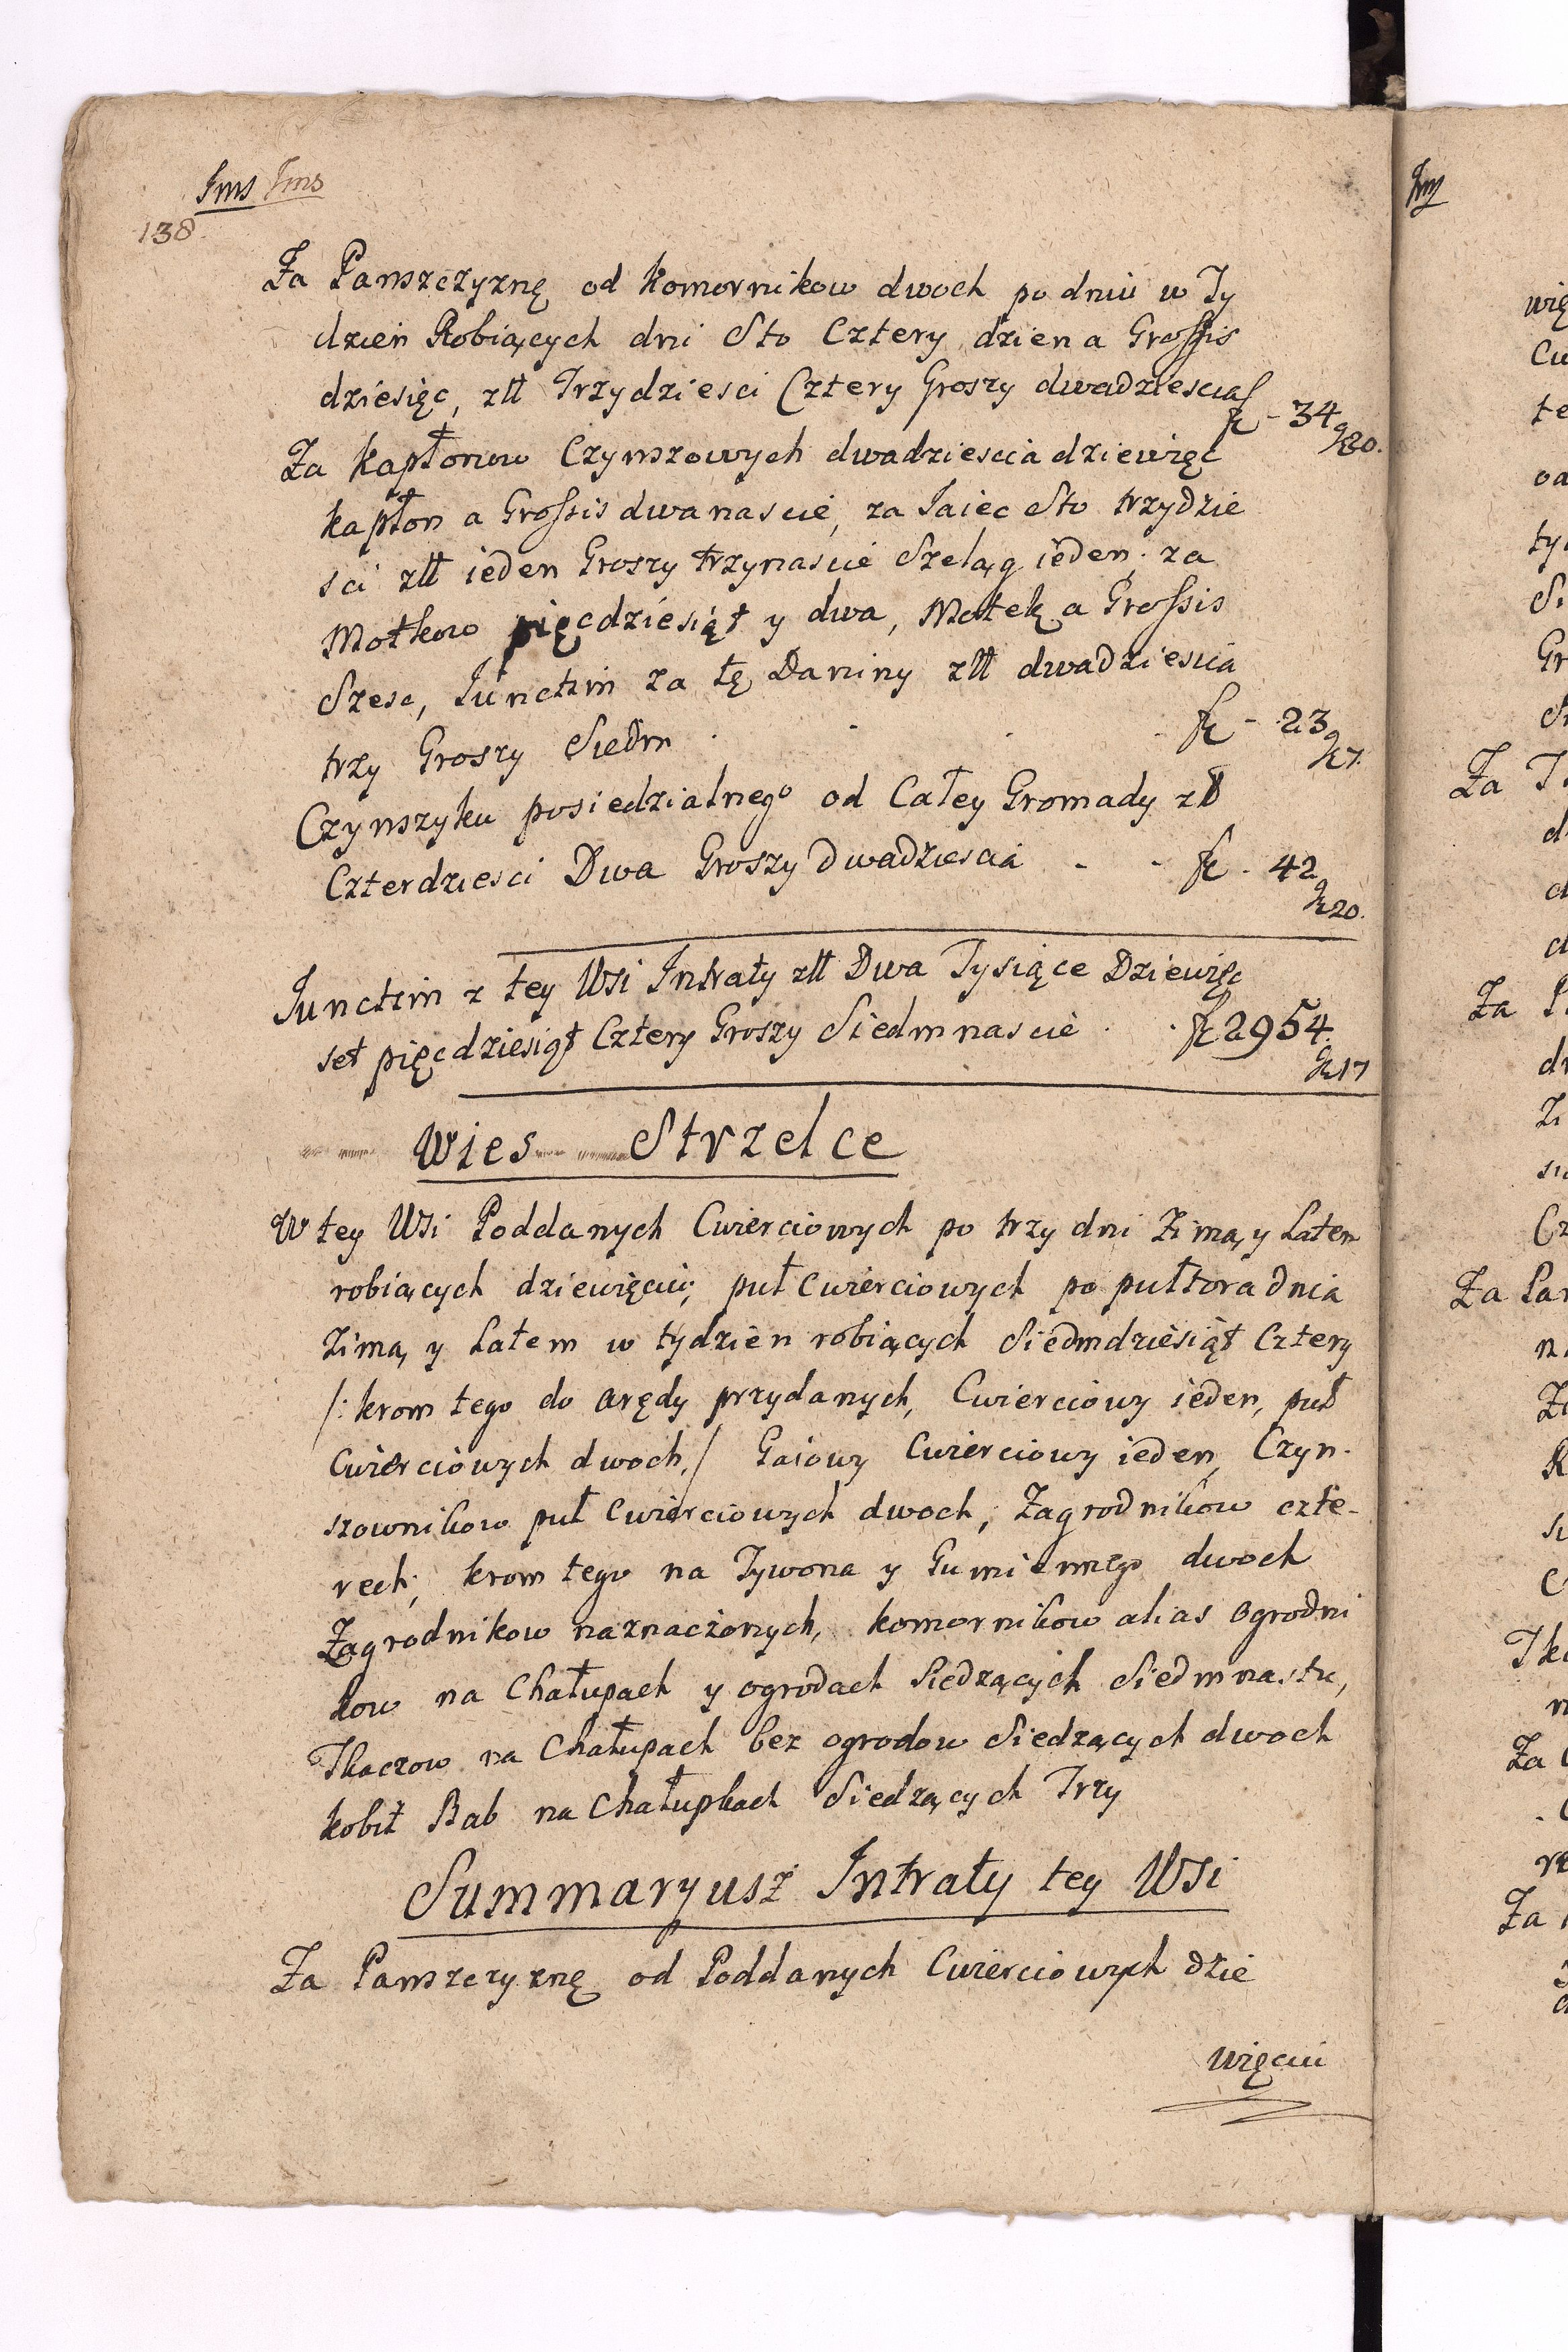 Jms Jms
138.
Za Panszczyznę od komornikow dwoch po dniu w Ty
dzień Robiących dni Sto Cztery dzien a Grossis
dziesięc, złł Trzydziesci Cztery Groszy dwadziescia fl - 34
gr 20.
Za kapłonow Czynszowych dwadziescia dziewięc
kapłon a Grossis dwanascie, za Jaiec Sto trzydzie
sci złł ieden Groszy trzynascie Szeląg ieden. za
Motkow pięcdziesiąt y dwa, Motek a Grossis
Szesc, Junctim za tę Daniny złł dwadziescia
trzy Groszy Siedm . . . . fl - 23
gr 7.
Czynszyku posiedzialnego od Całey Gromady zł
Czterdziesci Dwa Groszy Dwadziescia - - fl - 42
gr 20.
Junctim z tey Wsi Intraty złł Dwa Tysiące Dziewięc
set pięcdziesiąt Cztery Groszy Siedmnascie . . fl 2954.
gr 17
Wies Strzelce
W tey Wsi Poddanych Cwierciowych po trzy dni Zimą y Latem
robiących dziewięciu; puł cwierciowych po pułtora dnia
Zimą y Latem w tydzien robiących Siedmdziesiąt Cztery
/: krom tego do arędy przydanych, Cwierciowy ieden, puł
Cwierciowych dwoch, / Gaiowy Cwierciowy ieden, Czyn-
szownikow puł Cwierciowych dwoch, Zagrodnikow czte-
rech; krom tego na Tywona y Gumiennego dwoch
Zagrodnikow naznaczonych, komornikow alias ogrodni
kow na Chałupach y ogrodach Siedzących Siedmnastu,
Tkaczow na Chałupach bez ogrodow Siedzących dwoch
kobit Bab na Chałupkach Siedzących Trzy
Summaryusz Intraty tey Wsi
Za Panszczyznę od Poddanych Cwierciowych dzie
więciu